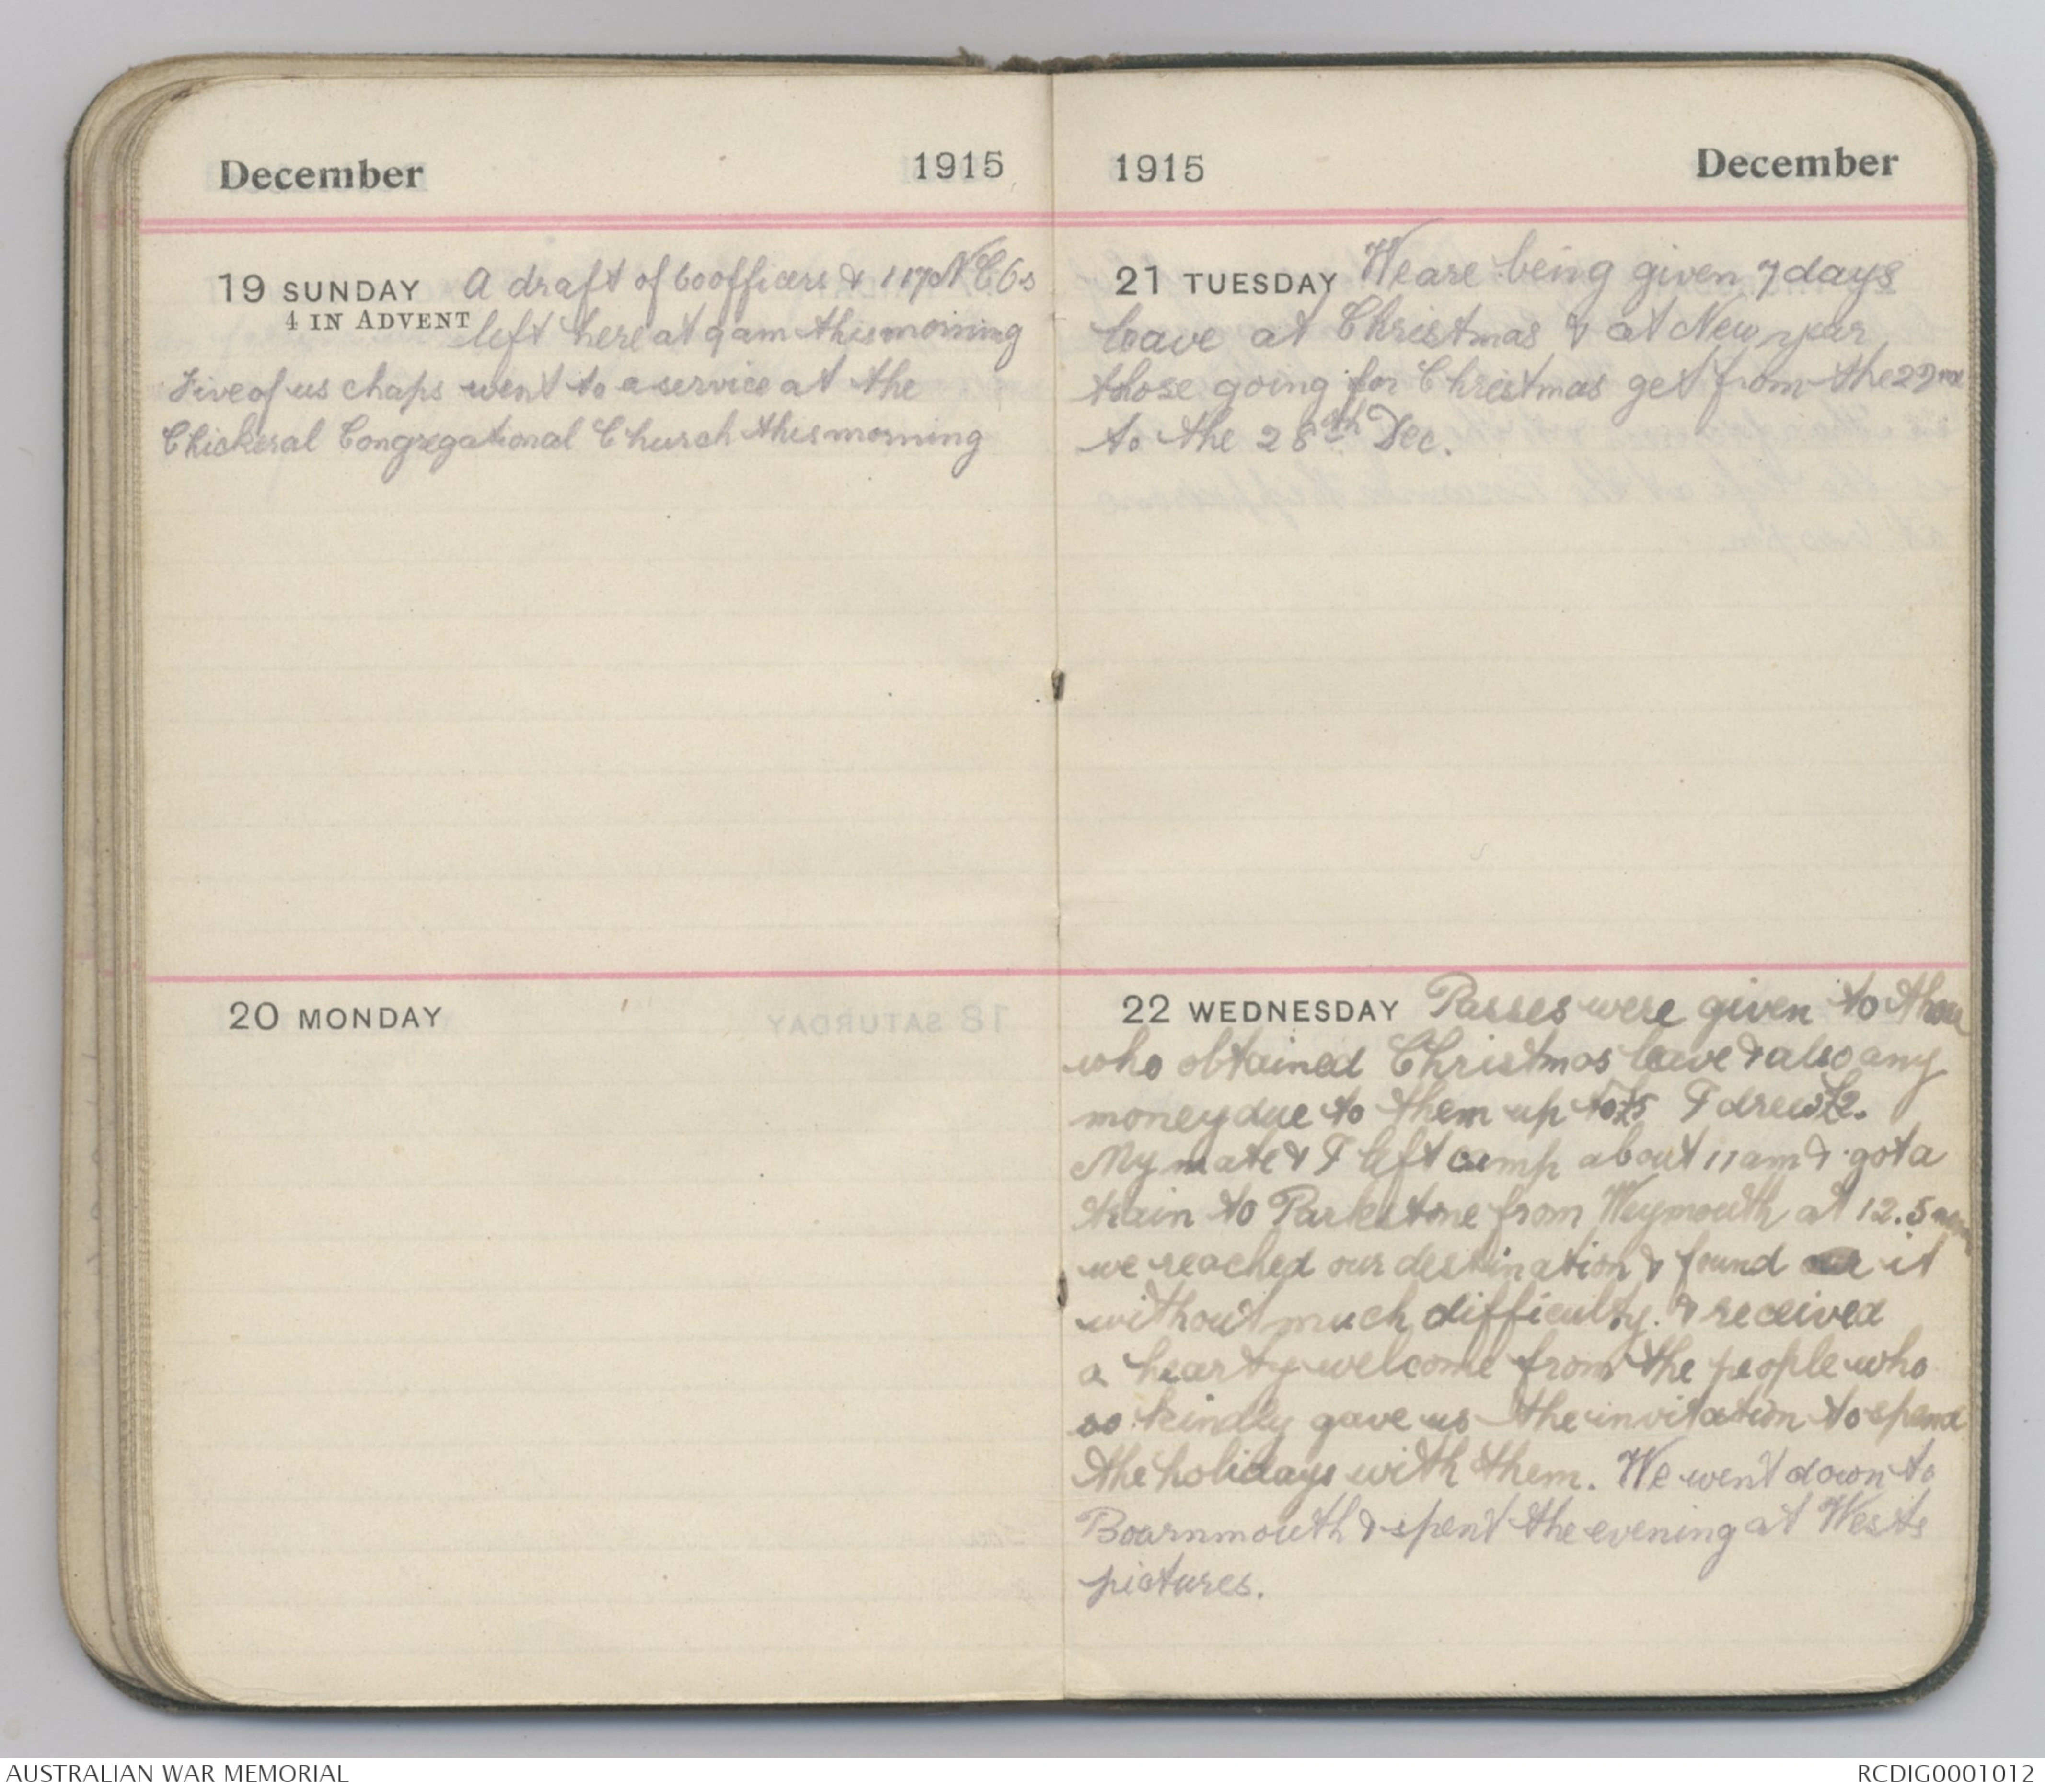 December 1915
19 SUNDAY A draft of 60 officers & 117 N C Os
4 IN ADVENT left here at 9 am this morning
Five of us chaps went to a service at the
Chickeral Congregational Church this morning
20 MONDAY
1915 December
21 TUESDAY We are being given 7 days
leave at Christmas & at New year
those going for Christmas get from the 22nd
to the 28th Dec.
22 WEDNESDAY Passes were given to those
who obtained Christmas leave & also any
money due to them up to £5 I drew £2.
My mate & I left camp about 11 am & got a
train to Parkstone from Weymouth at 12.5
we reached our destination & found it
without much difficulty. & received
a hearty welcome from the people who
so kindly gave us the invitation to spend
the holidays with them. We went down to
Bournmouth & spent the evening at Wests
pictures.
AUSTRALIAN WAR MEMORIAL
RCDIG0001012